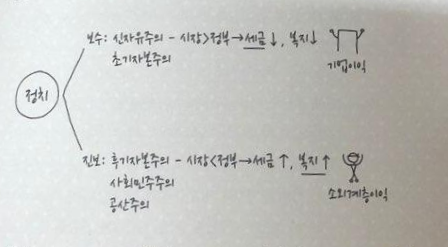 정치
보수: 신자유주의 - 시장>정부→세금↓, 복지↓
초기자본주의
기업이익
진보: 후기자본주의 - 시장<정부→세금↑, 복지↑
사회민주주의
공산주의
소외계층이익